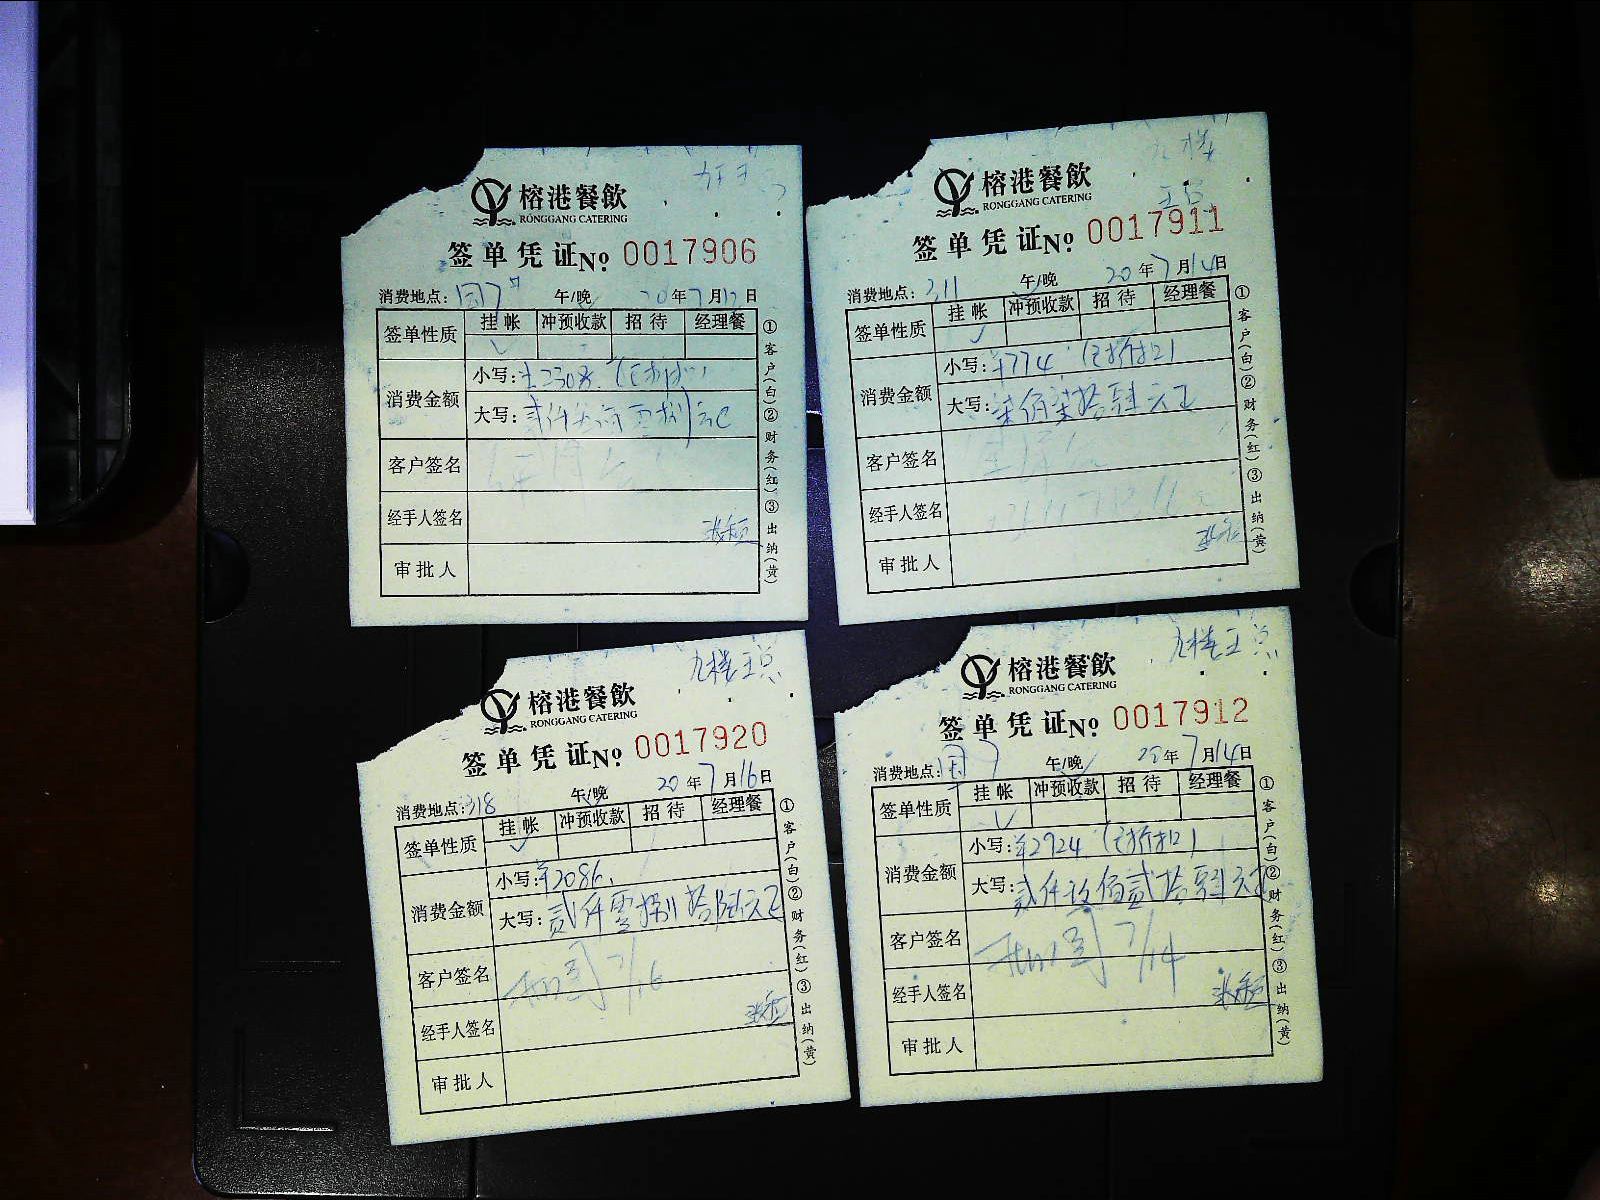 榕港餐飲
RONGGANG CATERING
签单凭证№ 0017906
消费地点: 午/晚 20年7月12日
签单性质 挂帐 冲预收款 招待 经理餐
消费金额 小写:
大写:
客户签名
经手人签名
审批人
①客户(白)②财务(红)③出纳(黄)
九楼
王总
榕港餐飲
RONGGANG CATERING
签单凭证№ 0017911
消费地点: 311 午/晚 20年7月14日
签单性质 挂帐 冲预收款 招待 经理餐
消费金额 小写:¥774
大写:柒佰柒拾肆元正
客户签名
经手人签名
审批人
①客户(白)②财务(红)③出纳(黄)
九楼王总
榕港餐飲
RONGGANG CATERING
签单凭证№ 0017920
消费地点:318 午/晚 20年7月16日
签单性质 挂帐 冲预收款 招待 经理餐
消费金额 小写:¥2086.
大写:贰仟零捌拾陆元正
客户签名 7/16
经手人签名
审批人
①客户(白)②财务(红)③出纳(黄)
九楼王总
榕港餐飲
RONGGANG CATERING
签单凭证№ 0017912
消费地点: 午/晚 20年7月14日
签单性质 挂帐 冲预收款 招待 经理餐
消费金额 小写:¥2924
大写:贰仟玖佰贰拾肆元正
客户签名 7/14
经手人签名
审批人
①客户(白)②财务(红)③出纳(黄)